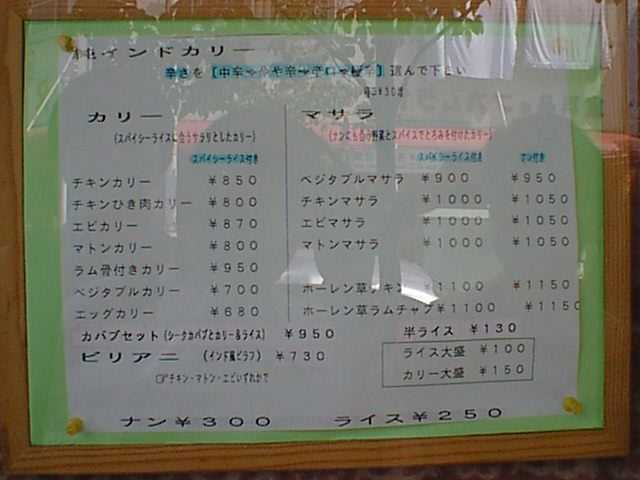 純インドカリー
辛さを [中辛⇒やや辛⇒辛口⇒極辛] 選んで下さい
極辛¥30増
カリー
(スパイシーライスに合うサラリとしたカリー)
スパイシーライス付き
チキンカリー ¥850
チキンひき肉カリー ¥800
エビカリー ¥870
マトンカリー ¥800
ラム骨付きカリー ¥950
ベジタブルカリー ¥700
エッグカリー ¥680
マサラ
(ナンにも合う野菜とスパイスでとろみを付けたカリー)
スパイシーライス付き ナン付き
ベジタブルマサラ ¥900 ¥950
チキンマサラ ¥1000 ¥1050
エビマサラ ¥1000 ¥1050
マトンマサラ ¥1000 ¥1050
ホーレン草チキン ¥1100 ¥1150
ホーレン草ラムチャプ ¥1100 ¥1150
カバブセット (シークカバブとカリー&ライス) ¥950
ビリアニ (インド風ピラフ) ¥730
☞チキン・マトン・エビいずれかで
半ライス ¥130
ライス大盛 ¥100
カリー大盛 ¥150
ナン¥300 ライス¥250